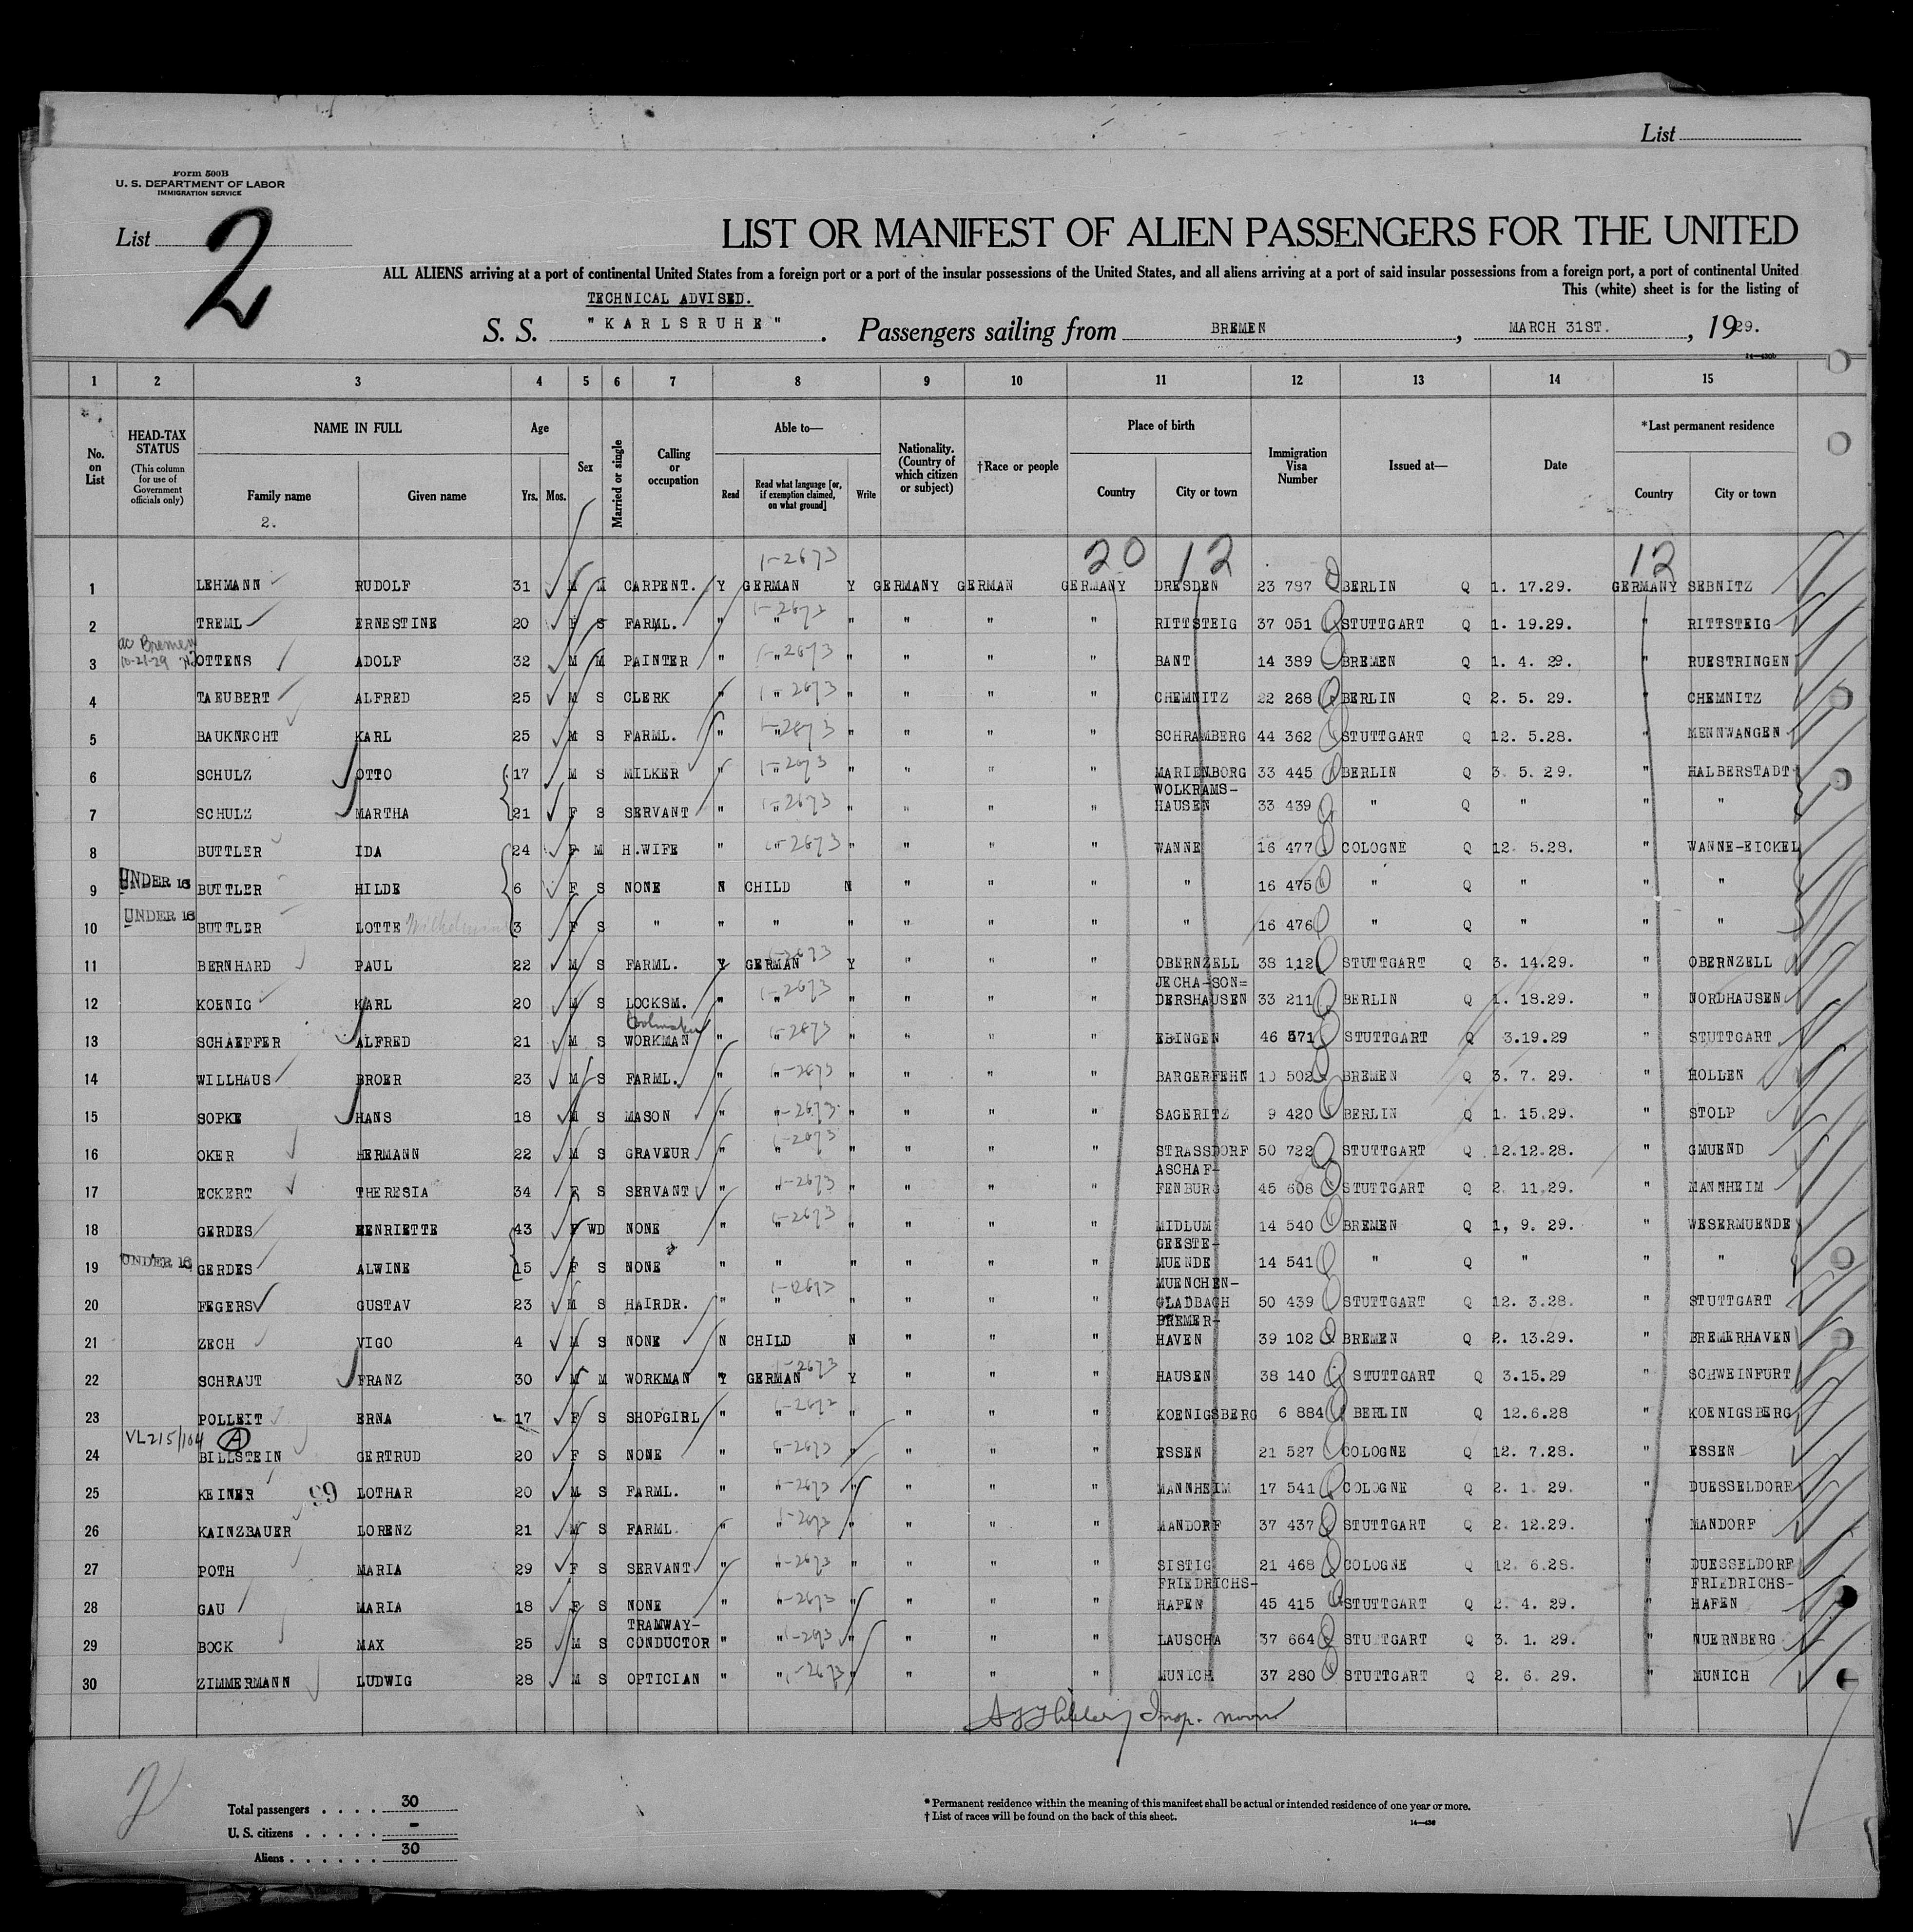 List
Form 500B
U. S. DEPARTMENT OF LABOR
IMMIGRATION SERVICE
List 2
LIST OR MANIFEST OF ALIEN PASSENGERS FOR THE UNITED
ALL ALIENS arriving at a port of continental United States from a foreign port or a port of the insular possessions of the United States, and all aliens arriving at a port of said insular possessions from a foreign port, a port of continental United
This (white) sheet is for the listing of
TECHNICAL ADVISED.
S. S. "KARLSRUHE". Passengers sailing from BREMEN, MARCH 31ST., 1929.
14—430b
1 2 3 4 5 6 7 8 9 10 11 12 13 14 15
No. on List
HEAD-TAX STATUS (This column for use of Government officials only)
NAME IN FULL Family name Given name
2.
Age Yrs. Mos.
Sex
Married or single
Calling or occupation
Able to— Read Read what language [or, if exemption claimed, on what ground] Write
Nationality. (Country of which citizen or subject)
†Race or people
Place of birth Country City or town
Immigration Visa Number
Issued at—
Date
*Last permanent residence Country City or town
1-2673 20 12 12
1 LEHMANN RUDOLF 31 M M CARPENT. Y GERMAN Y GERMANY GERMAN GERMANY DRESDEN 23 787 BERLIN Q 1. 17.29. GERMANY SEBNITZ
2 TREML ERNESTINE 20 F S FARML. " " 1-2673 " " " " RITTSTEIG 37 051 STUTTGART Q 1. 19.29. " RITTSTEIG
ac Bremen
10-21-29
3 OTTENS ADOLF 32 M M PAINTER " " 1-2673 " " " " BANT 14 389 BREMEN Q 1. 4. 29. " RUESTRINGEN
4 TAEUBERT ALFRED 25 M S CLERK " " 1-2673 " " " " CHEMNITZ 22 268 BERLIN Q 2. 5. 29. " CHEMNITZ
5 BAUKNECHT KARL 25 M S FARML. " " 1-2673 " " " " SCHRAMBERG 44 362 STUTTGART Q 12. 5.28. " MENNWANGEN
6 SCHULZ OTTO 17 M S MILKER " " 1-2673 " " " " MARIENBORG 33 445 BERLIN Q 3. 5. 29. " HALBERSTADT
7 SCHULZ MARTHA 21 F S SERVANT " " 1-2673 " " " " WOLKRAMS-HAUSEN 33 439 " Q " " "
8 BUTTLER IDA 24 F M H.WIFE " " 1-2673 " " " " WANNE 16 477 COLOGNE Q 12. 5.28. " WANNE-EICKEL
9 UNDER 16 BUTTLER HILDE 6 F S NONE N CHILD N " " " " 16 475 " Q " " "
10 UNDER 16 BUTTLER LOTTE 3 F S " " " " " " " " 16 476 " Q " " "
11 BERNHARD PAUL 22 M S FARML. Y GERMAN 1-2673 Y " " " OBERNZELL 38 112 STUTTGART Q 3. 14.29. " OBERNZELL
12 KOENIG KARL 20 M S LOCKSM. " " 1-2673 " " " " JECHA-SON=DERSHAUSEN 33 211 BERLIN Q 1. 18.29. " NORDHAUSEN
13 SCHAEFFER ALFRED 21 M S toolmaker WORKMAN " " 1-2673 " " " " EBINGEN 46 571 STUTTGART Q 3.19.29 " STUTTGART
14 WILLHAUS BROER 23 M S FARML. " " 1-2673 " " " " BARGERFEHN 10 502 BREMEN Q 3. 7. 29. " HOLLEN
15 SOPKE HANS 18 M S MASON " " 1-2673 " " " " SAGERITZ 9 420 BERLIN Q 1. 15.29. " STOLP
16 OKER HERMANN 22 M S GRAVEUR " " 1-2673 " " " " STRASSDORF 50 722 STUTTGART Q 12.12.28. " GMUEND
17 ECKERT THERESIA 34 F S SERVANT " " 1-2673 " " " " ASCHAF-FENBURG 45 608 STUTTGART Q 2. 11.29. " MANNHEIM
18 GERDES HENRIETTE 43 F WD NONE " " 1-2673 " " " " MIDLUM 14 540 BREMEN Q 1, 9. 29. " WESERMUENDE
19 UNDER 16 GERDES ALWINE 15 F S NONE " " " " " " GEESTE-MUENDE 14 541 " Q " " "
20 FEGERS GUSTAV 23 M S HAIRDR. " " 1-2673 " " " " MUENCHEN-GLADBACH 50 439 STUTTGART Q 12. 3.28. " STUTTGART
21 ZECH VIGO 4 M S NONE N CHILD N " " " BREMER-HAVEN 39 102 BREMEN Q 2. 13.29. " BREMERHAVEN
22 SCHRAUT FRANZ 30 M M WORKMAN Y GERMAN 1-2673 Y " " " HAUSEN 38 140 STUTTGART Q 3.15.29 " SCHWEINFURT
23 POLLEIT ERNA 17 F S SHOPGIRL " " 1-2672 " " " " KOENIGSBERG 6 884 BERLIN Q 12.6.28 " KOENIGSBERG
VL215/104 A
24 BILLSTEIN GERTRUD 20 F S NONE " " 1-2673 " " " " ESSEN 21 527 COLOGNE Q 12. 7.28. " ESSEN
25 KEINER 99 LOTHAR 20 M S FARML. " " 1-2673 " " " " MANNHEIM 17 541 COLOGNE Q 2. 1. 29. " DUESSELDORF
26 KAINZBAUER LORENZ 21 M S FARML. " " 1-2673 " " " " MANDORF 37 437 STUTTGART Q 2. 12.29. " MANDORF
27 POTH MARIA 29 F S SERVANT " " 1-2673 " " " " SISTIG 21 468 COLOGNE Q 12. 6.28. " DUESSELDORF
28 GAU MARIA 18 F S NONE " " 1-2673 " " " " FRIEDRICHS-HAFEN 45 415 STUTTGART Q 2. 4. 29. " FRIEDRICHS-HAFEN
29 BOCK MAX 25 M S TRAMWAY-CONDUCTOR " " 1-2673 " " " " LAUSCHA 37 664 STUTTGART Q 3. 1. 29. " NUERNBERG
30 ZIMMERMANN LUDWIG 28 M S OPTICIAN " " 1-2673 " " " " MUNICH 37 280 STUTTGART Q 2. 6. 29. " MUNICH
Insp.
2
Total passengers . . . . 30
U. S. citizens . . . . . -
Aliens . . . . . . 30
* Permanent residence within the meaning of this manifest shall be actual or intended residence of one year or more.
† List of races will be found on the back of this sheet.
14—430